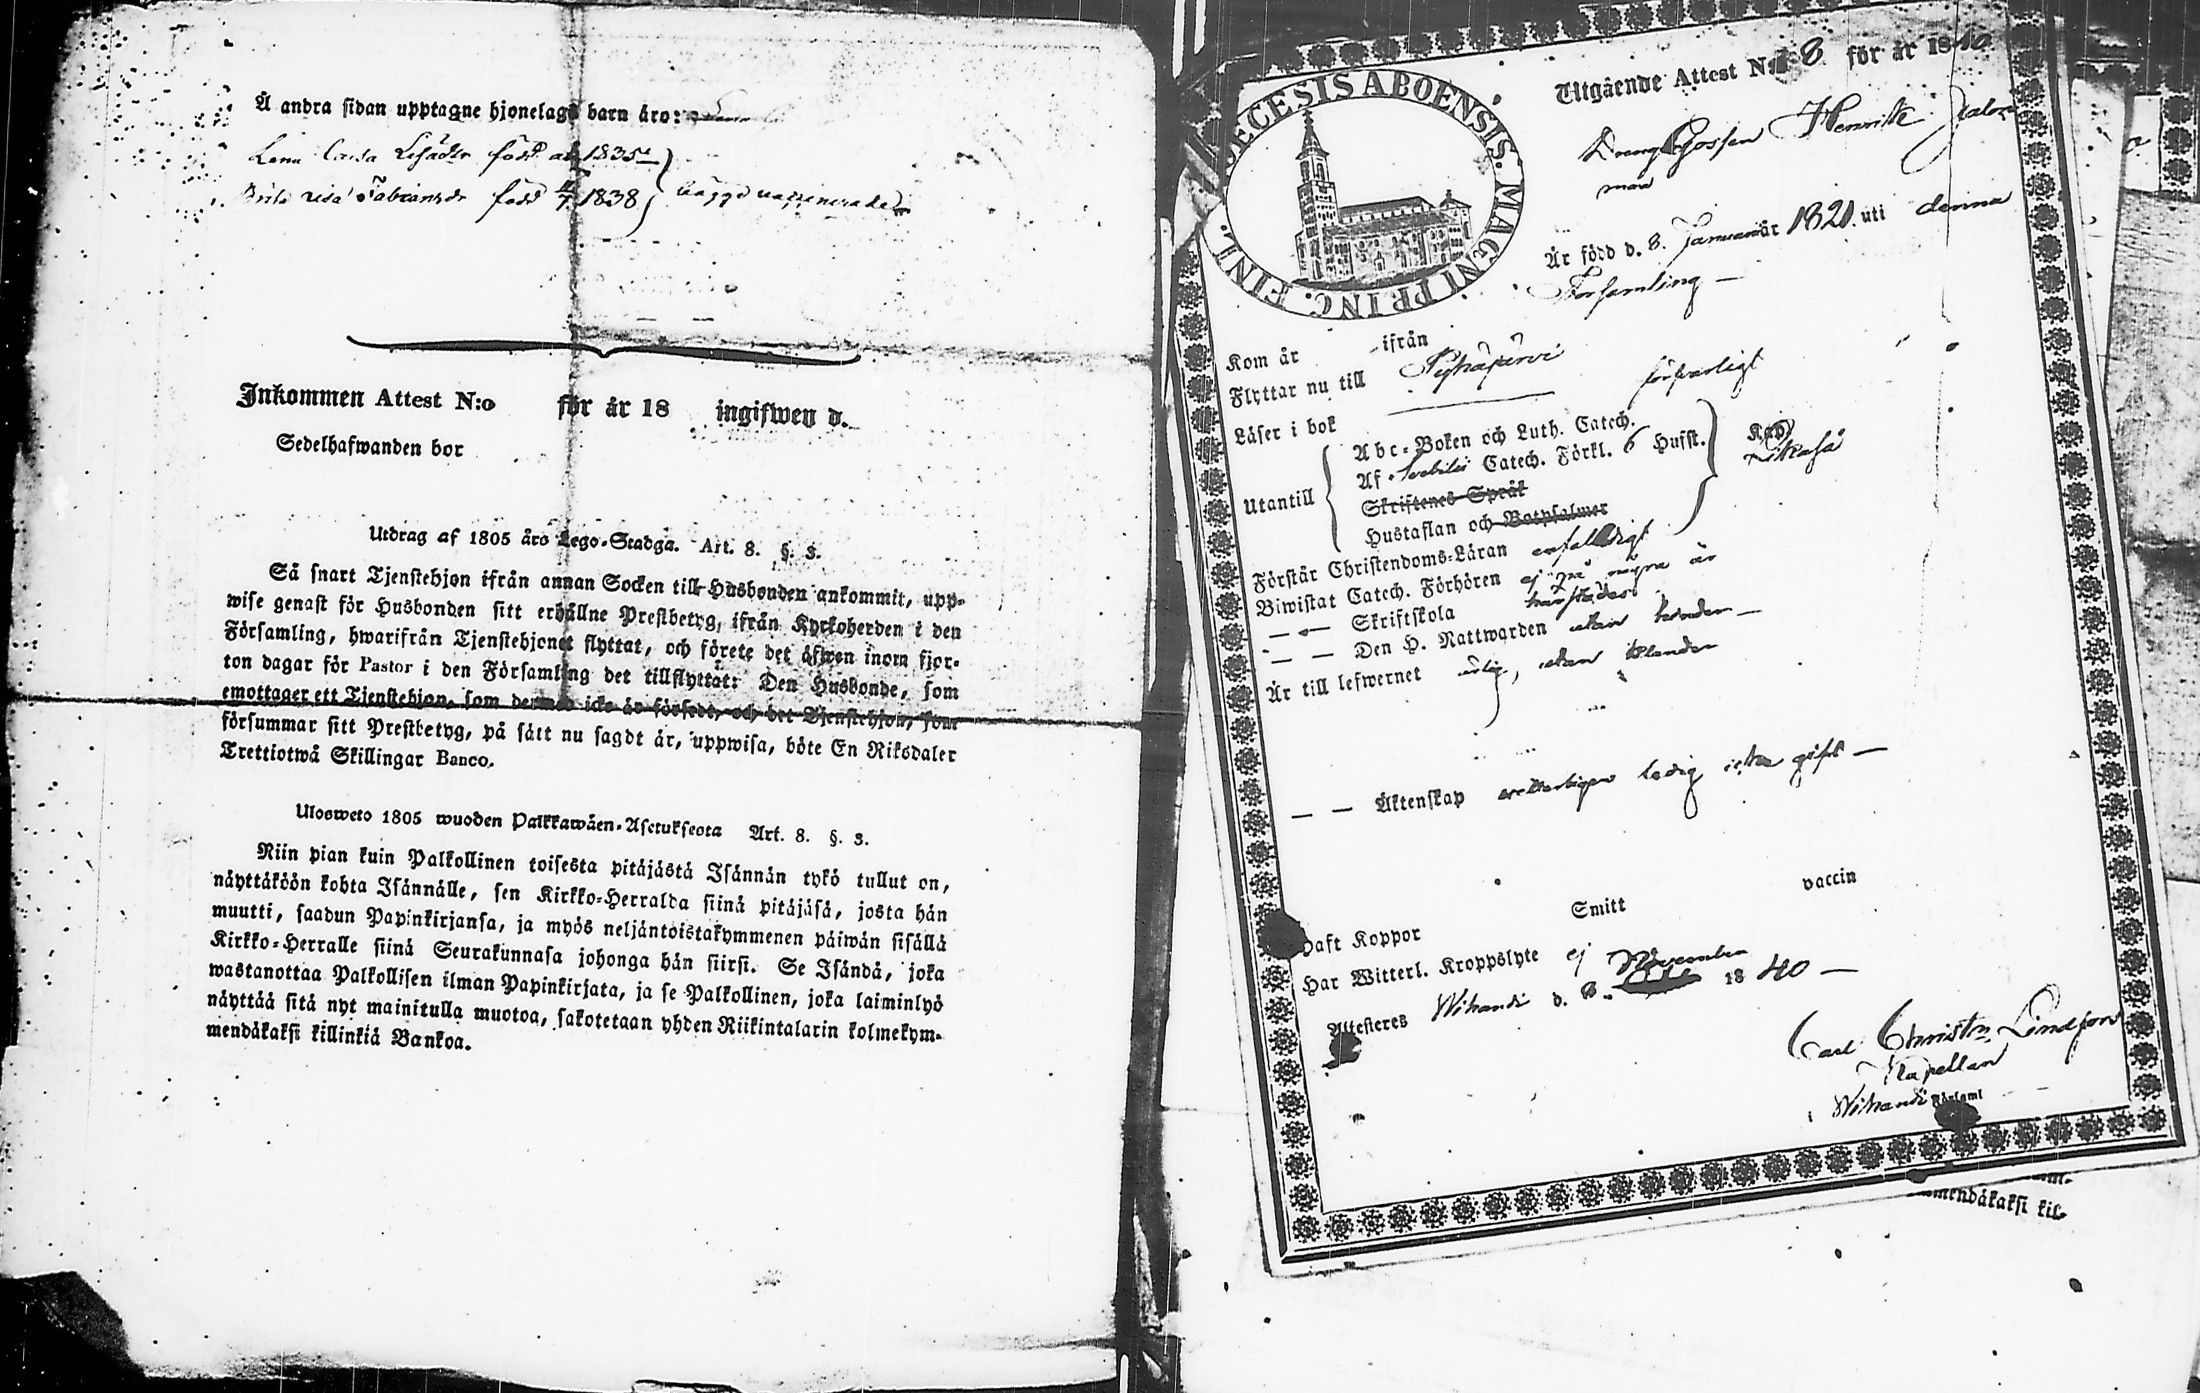 Å andra sidan upptagne hjonelags barn äro:
Lena Caisa född 1835
född 4/7 1838 bägge vaccinerade
Inkommen Attest N:o för år 18 ingifwen d.
Sedelhafwanden bor
Utdrag af 1805 års Lego-Stadga. Art. 8. §. 3.
Så snart Tjenstehjon ifrån annan Socken till Husbonden ankommit, upp-
wise genast för Husbonden sitt erhållne Prestbetyg, ifrån Kyrkoherden i den
Församling, hwarifrån Tjenstehjonet flyttat, och förete det äfwen inom fjor-
ton dagar för Pastor i den Församling det tillflyttat: Den Husbonde, som
emottager ett Tjenstehjon, som dermed icke är försedt, och det Tjenstehjon, som
försummar sitt Prestbetyg, på sätt nu sagdt är, uppwisa, böte En Riksdaler
Trettiotwå Skillingar Banco.
Ulosweto 1805 wuoden Palkkawäen-Asetuksesta Art. 8. §. 3.
Niin pian kuin Palkollinen toisesta pitäjästä Isännän tykö tullut on,
näyttäköön kohta Isännälle, sen Kirkko-Herralda siinä pitäjäsä, josta hän
muutti, saadun Papinkirjansa, ja myös neljäntoistakymmenen päiwän sisällä
Kirkko-Herralle siinä Seurakunnasa johonga hän siirsi. Se Isändä, joka
wastanottaa Palkollisen ilman Papinkirjata, ja se Palkollinen, joka laiminlyö
näyttää sitä nyt mainitulla muotoa, sakotetaan yhden Riikintalarin kolmekym-
mendäkaksi killinkiä Bankoa.
DIOECESIS ABOENSIS. MAGNI PRINC. FINL.
Utgående Attest N:o 8 för år 1840
Dreng Gossen Henrik
Är född d. 8. Januari år 1821. uti denna
Församling —
Kom år ifrån
Flyttar nu till Pyhäjärvi
Läser i bok försvarligt
Utantill
Abc-Boken och Luth. Catech.
Af Svebilii Catech. Förkl. 6 Hufst.
Skriftenes Språk
Hustaflan och Botpsalmer
Kap
Likaså
Förstår Christendoms-Läran enfaldigt
Biwistat Catech. Förhören ej på några år
— „ — Skriftskola härstädes
— — Den H. Nattwarden utan hinder —
Är till lefwernet ärlig, utan klander
— — Äktenskap ledig ifrån gifte —
Haft Koppor Smitt vaccin
Har Witterl. Kroppslyte ej
Attesteres Wihandi d. 8. November 1840 —
Carl Christn Lindfors
Kapellan
Wihandi Församl
mendäkaksi kil-